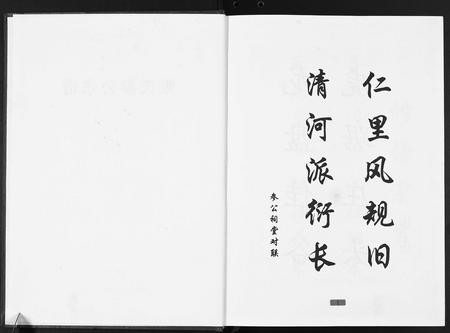 仁里风规旧
清河派衍长
参公祠堂对联